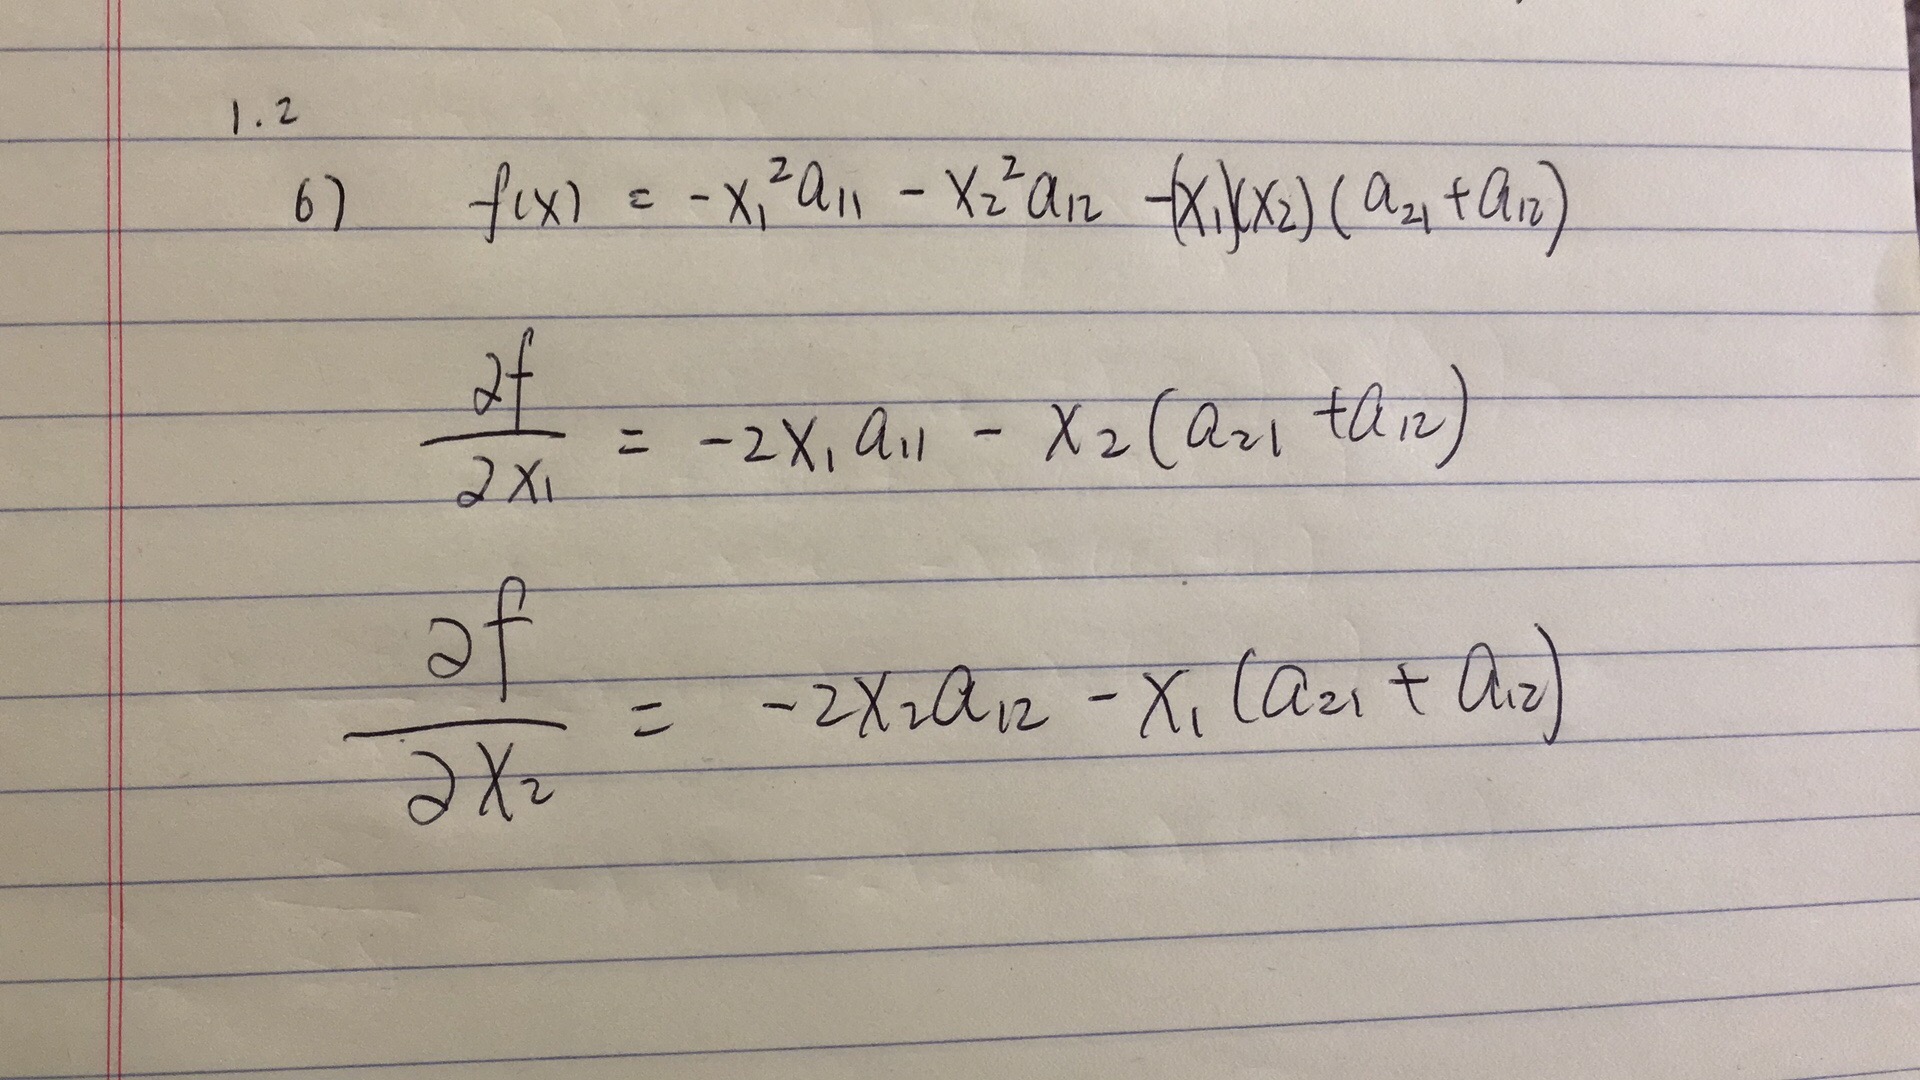 1.2
6) f(x) = -x₁²a₁₁ - x₂²a₁₂ -(x₁)(x₂)(a₂₁+a₁₂)
∂f/∂x₁ = -2x₁a₁₁ - x₂(a₂₁+a₁₂)
∂f/∂x₂ = -2x₂a₁₂ - x₁(a₂₁+a₁₂)